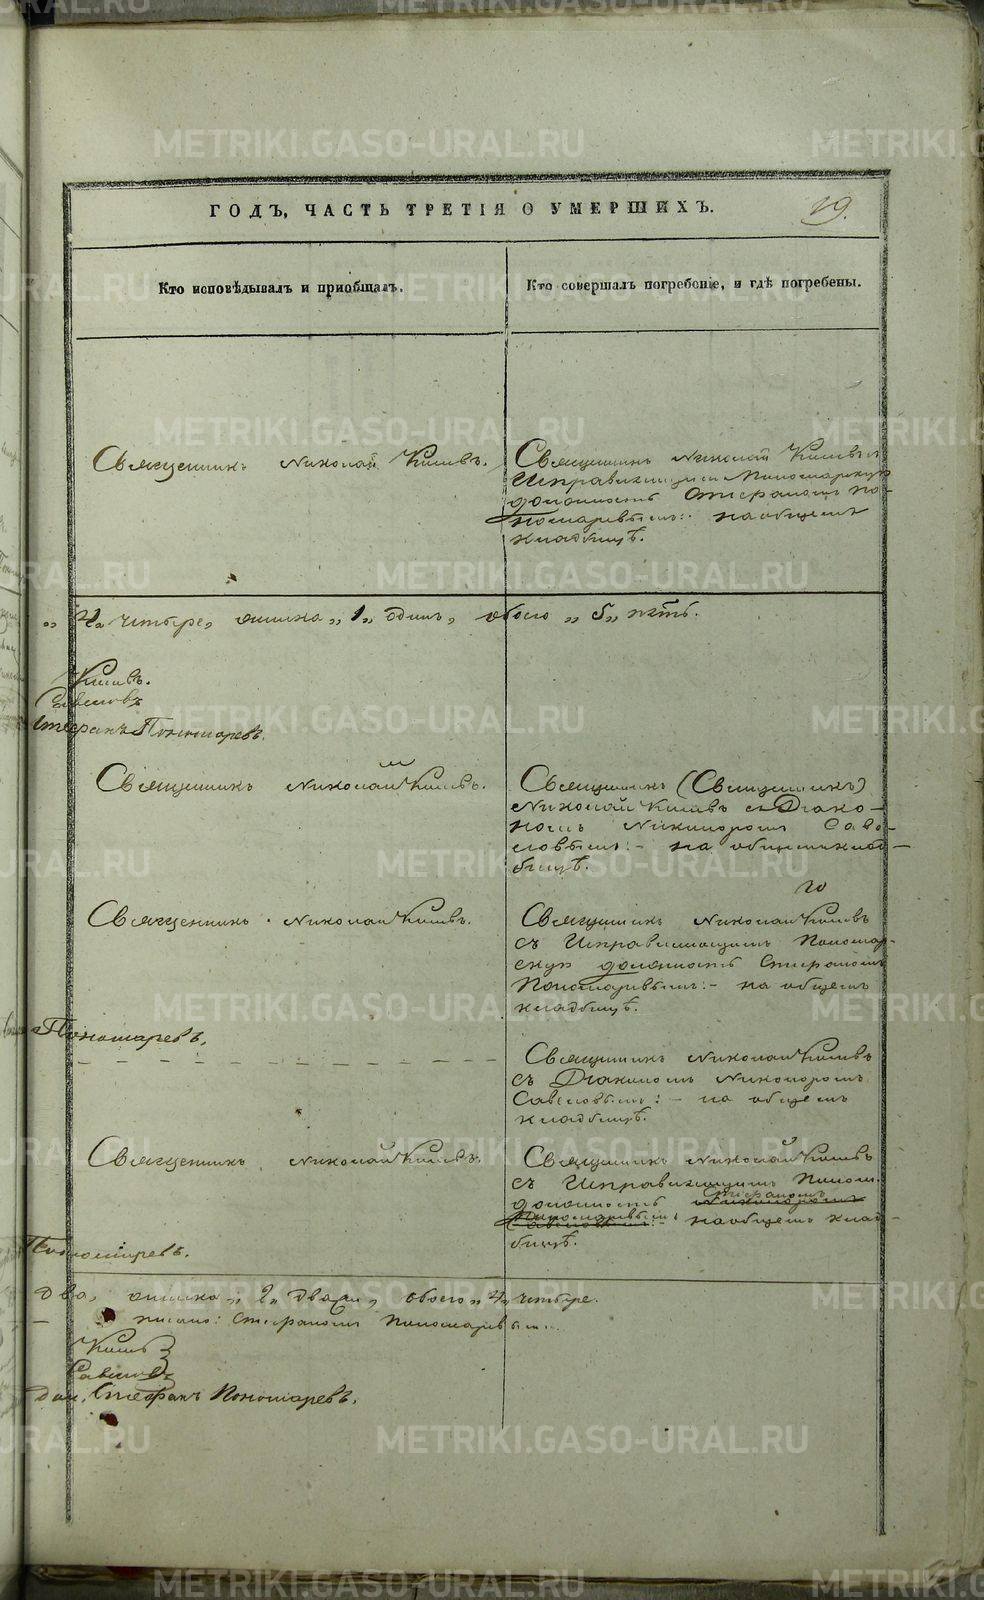 ГОДЪ, ЧАСТЬ ТРЕТІЯ О УМЕРШИХЪ.
19.
Кто исповѣдывалъ и пріобщалъ.
Кто совершалъ погребеніе, и гдѣ погребены.
Священникъ Николай
Священникъ Николай
Исправляющимъ Пономарскую
должность Стефаномъ По-
номаревымъ: на общемъ
кладбищѣ.
„ 4„ четыре, женска „1„ одинъ, обоего „5„ пять.
Стефанъ Пономаревъ.
Священникъ Николай
Священникъ (Священникъ)
Николай съ Діако-
номъ Никаноромъ Саве-
ловымъ:- на общемъ клад-
бищѣ.
Священникъ Николай
Священникъ Николай
съ Исправляющимъ Пономар-
скую должность Стефаномъ
Пономаревымъ:- на общемъ
кладбищѣ.
Пономаревъ.
Священникъ Николай
съ Діакономъ Никаноромъ
Савеловымъ:- на общемъ
кладбищѣ.
Священникъ Николай
Священникъ Николай
съ Исправляющимъ Поном.
должность Стефаномъ
Пономаревымъ:- на общемъ клад-
бищѣ.
Пономаревъ.
два, женска „2„ два, обоего „4„ четыре.
писано: Стефаномъ Пономаревымъ.
Стефанъ Пономаревъ.
METRIKI.GASO-URAL.RU